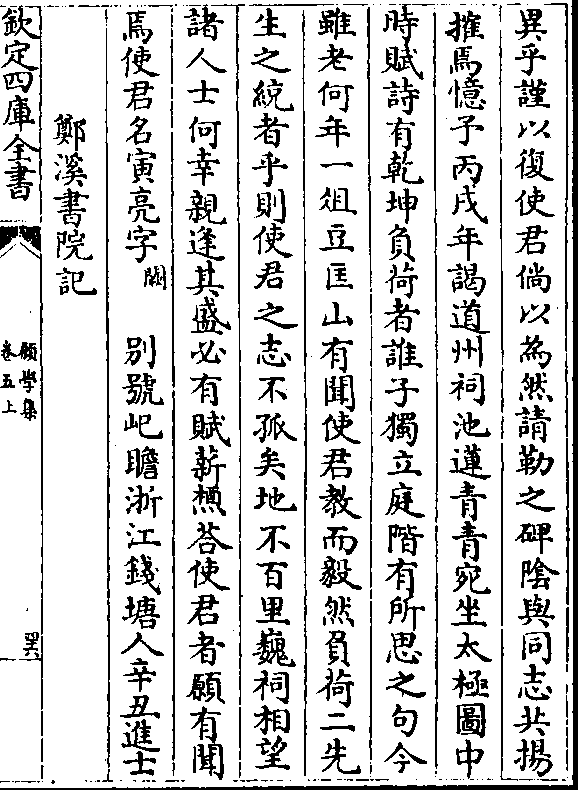 異乎謹以復使君倘以為然請勒之碑陰與同志共揚
搉焉憶予丙戌年謁道州祠池蓮青青宛坐太極圖中
時賦詩有乾坤負荷者誰子獨立庭階有所思之句今
雖老何年一俎豆匡山有聞使君教而毅然負荷二先
生之統者乎則使君之志不孤矣地不百里巍祠相望
諸人士何幸親逢其盛必有賦薪槱荅使君者願有聞
焉使君名寅亮字闕 別號屺瞻浙江錢塘人辛丑進士
鄭溪書院記
欽定四庫全書
願學集
卷五上
四六